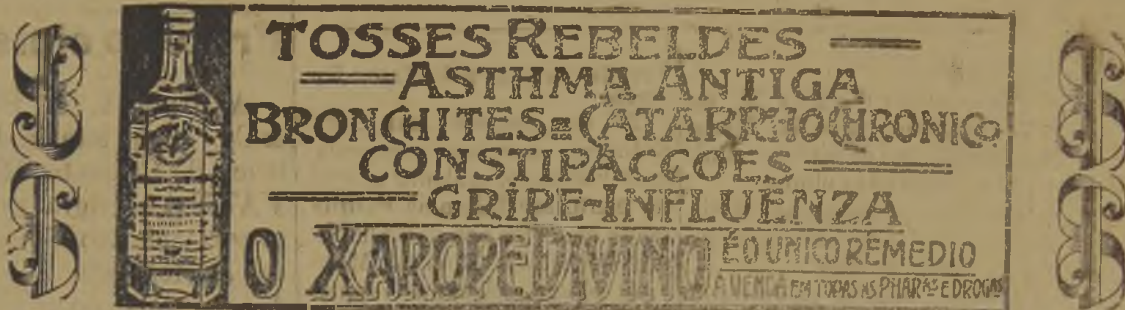 TOSSES REBELDES
ASTHMA ANTIGA
BRONCHITES=CATARRHO CHRONICO
CONSTIPACCOES
GRIPE-INFLUENZA
O XAROPE DIVINO É O UNICO REMEDIO
A VENDA EM TODAS AS PHARAS E DROGAS